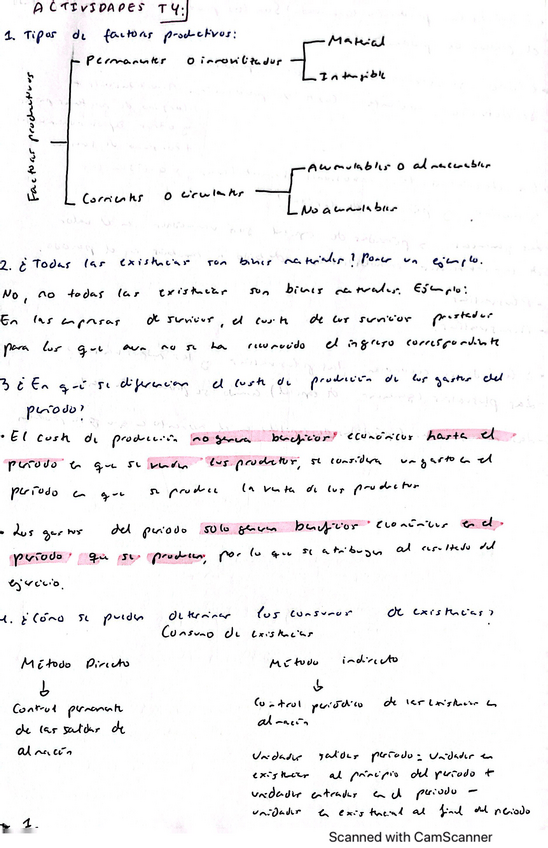 ACTIVIDADES T4:
1. Tipos de factores productivos:
Factores productivos
Permanentes o inmovilizados
Material
Intangible
Corrientes o circulantes
Acumulables o almacenables
No acumulables
2. ¿Todas las existencias son bienes materiales? Poner un ejemplo.
No, no todas las existencias son bienes materiales. Ejemplo:
En las empresas de servicios, el coste de los servicios prestados
para los que aun no se ha reconocido el ingreso correspondiente
3 ¿En qué se diferencian el coste de producción de los gastos del
periodo?
• El coste de producción no genera beneficios económicos hasta el
periodo en que se venden los productos, se considera un gasto en el
periodo en que se produce la venta de los productos
• Los gastos del periodo solo generan beneficios económicos en el
periodo que se producen, por lo que se atribuyen al resultado del
ejercicio.
4. ¿Cómo se pueden determinar los consumos de existencias?
Consumo de existencias
Método Directo
Método indirecto
Control permanente
de las salidas de
almacén
Control periódico de las existencias en
almacén
Unidades salidas periodo = unidades en
existencias al principio del periodo +
unidades entradas en el periodo -
unidades en existencias al final del periodo
1.
Scanned with CamScanner